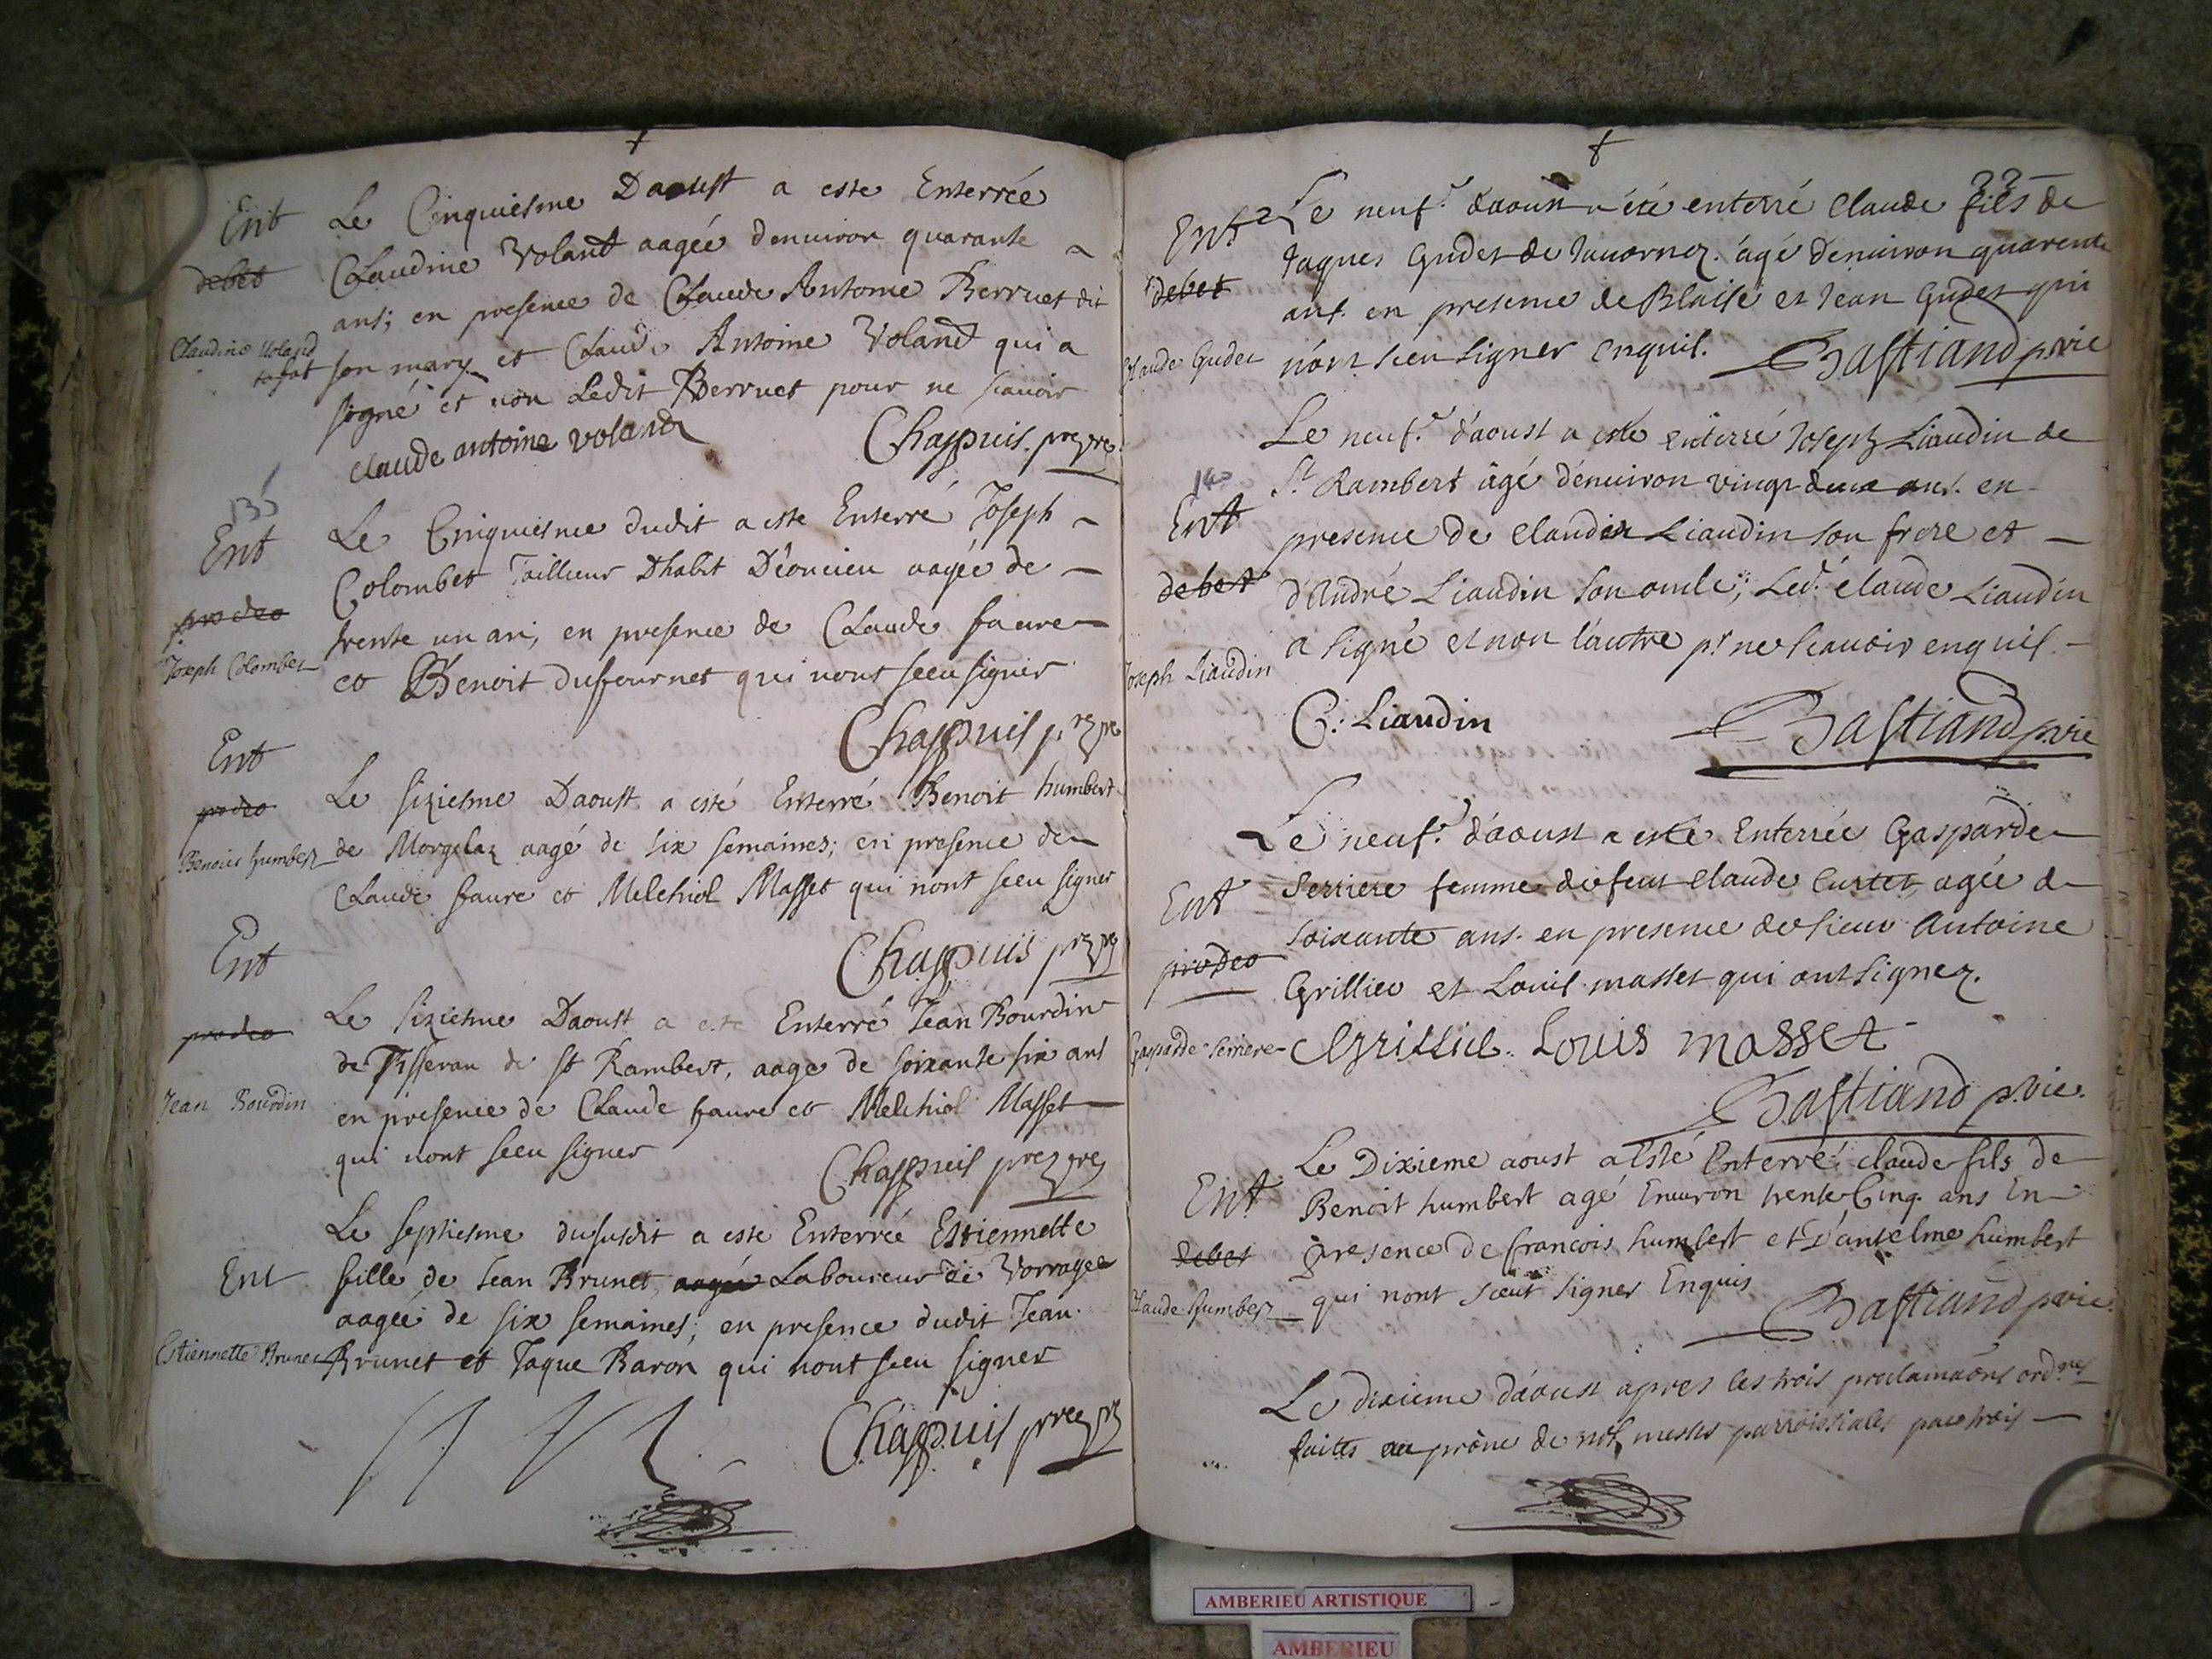 Ent
Le Cinquiesme Daoust a este Enterrée
debet
Claudine Voland aagée denuiron quarante
ans; en presence de Claude Antoine Berruet dit
Claudine Voland
son mary et Claude Antoine Voland qui a
signé et non Ledit Berruet pour ne scauoir
claude antoine voland
Chappuis
135
Ent
Le Cinquiesme dudit a este Enterré Joseph
Colombet Tailleur Dhabit aagée de
pro deo
trente un an, en presence de Claude faure
Joseph Colombet
et Benoit dufournet qui nont sceu signer
Chappuis
Ent
Le sixiesme Daoust a esté Enterré Benoit humbert
pro deo
Benoict humbert
de Morgelaz aagé de six semaines; en presence de
Claude faure et Melchiol Masset qui nont sceu signer
Ent
Chappuis
Le sixiesme Daoust a este Enterré Jean Bourdin
pro deo
de Tisseran de st Rambert, aage de soixante six ans
Jean Bourdin
en presence de Claude faure et Melchiol Masset
qui nont sceu signer
Chappuis
Le septiesme dususdit a este Enterrée Estiennette
Ent
fille de Jean Brunet aagée Laboureur de Vorragee
aagée de six semaines; en presence dudit Jean
Estiennette Brunet
Brunet et Jaque Baron qui nont sceu signer
Chappuis
22
Ent
Le neuf.e daoust a été enterré Claude fils de
debet
Jaques Gudet de âgé denuiron quarente
ans. en presence de Blaise et Jean Gudet qui
Claude Gudet
n'ont sceu signer enquis.
Bastiand p. vic
Le neuf.e d'aoust a esté enterré Joseph Liaudin de
140
St Rambert âgé d'enuiron vingt deux ans. en
Ent
presence de Claude Liaudin son frere et
debet
d'André Liaudin son oncle; Led.t Claude Liaudin
a signé et non l'autre p.r ne scauoir enquis.
Joseph Liaudin
C: Liaudin
Bastiand p. vic
Le neuf.e d'aoust a esté Enterrée Gasparde
Ent
Serriere femme de feu Claude Curtet, agée de
soixante ans. en presence de sieur Antoine
pro deo
Grillier et Louis masset qui ont signez.
Gasparde Serriere
Grillie. Louis masset
Bastiand p. vic.
Le Dixieme aoust a Esté Enterré claude fils de
Ent
Benoit humbert agé Enuiron trente Cinq ans En
debet
presence de francois humbert et D'anselme humbert
Claude humbert
qui nont sceut signer Enquis
Bastiand p. vic.
Le dixieme d'aoust apres les trois proclamaons ord.res
faites au prône de nos messes parroissiales par trois
AMBERIEU ARTISTIQUE
AMBERIEU